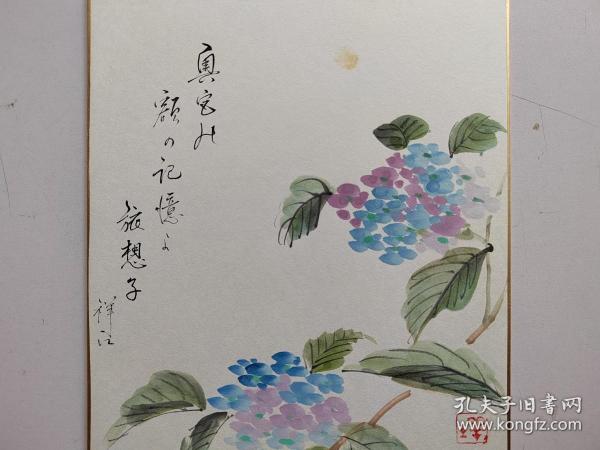 奥宮は
額の記憶よ
旅想子
祥江
孔夫子旧书网
www.kongfz.com